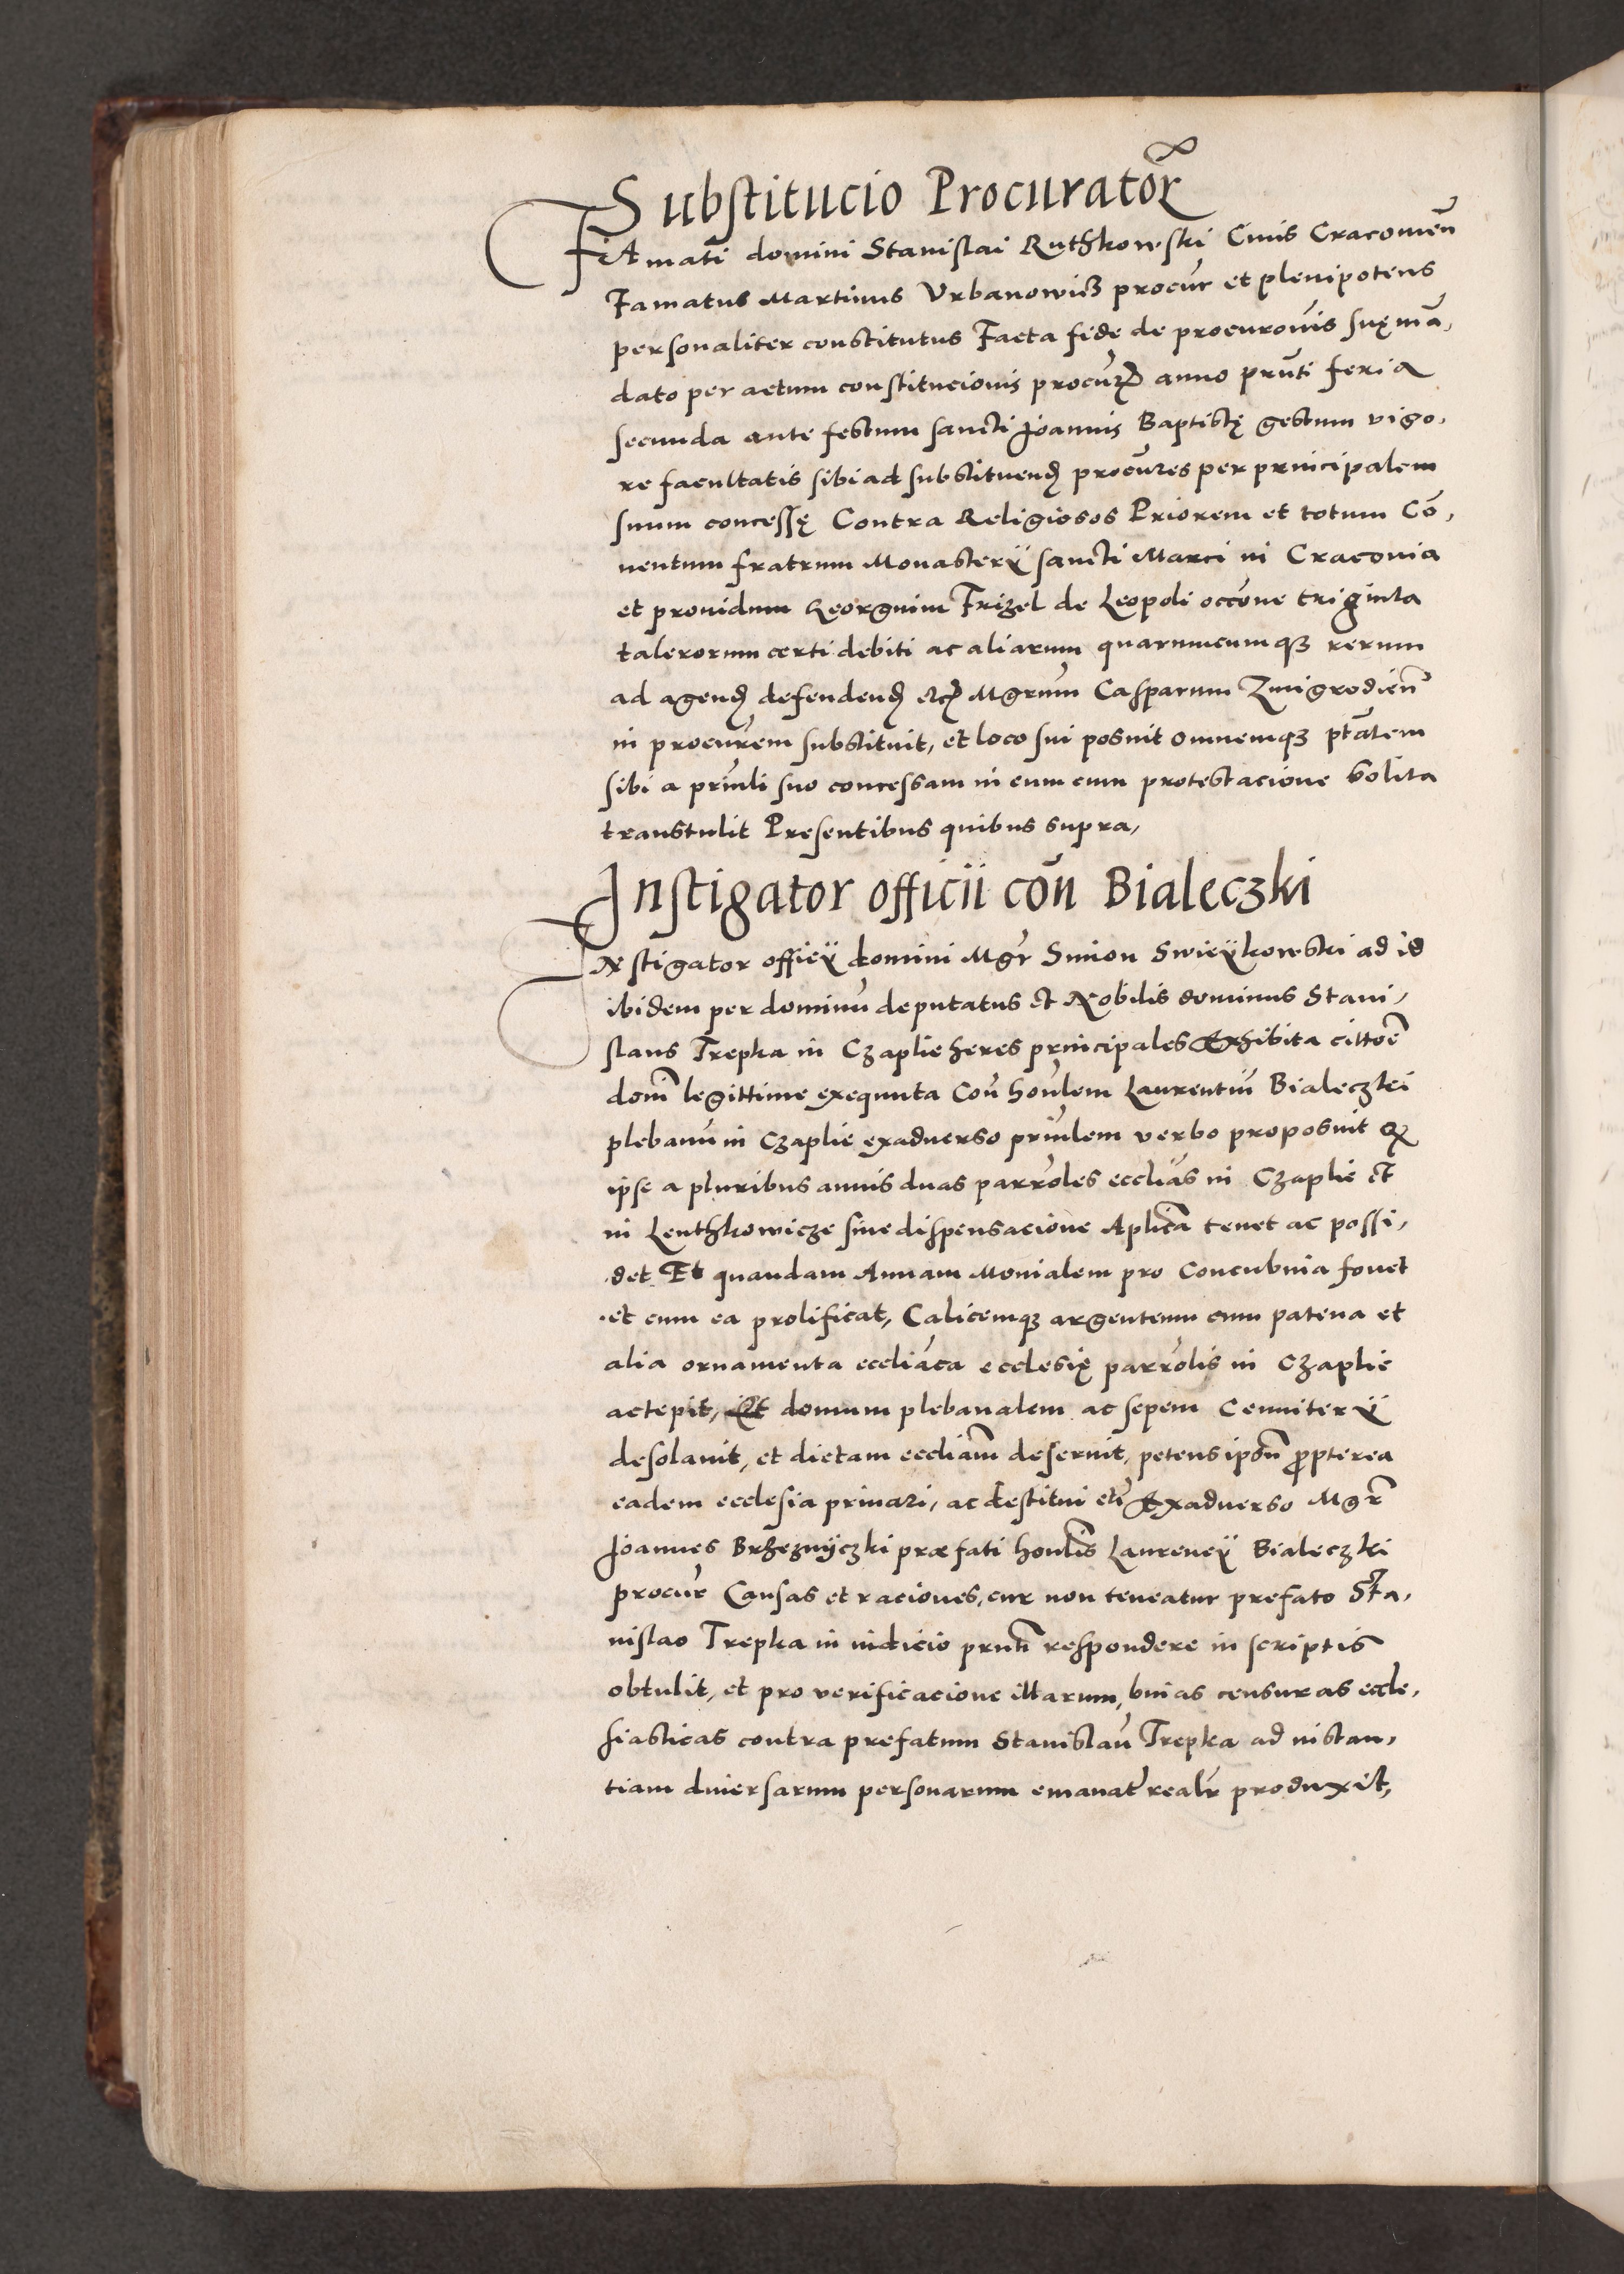 Substitucio Procuratoꝝ
FAmati domini Stanislai Ruthkowski Ciuis Cracouień
Famatus Martinus Vrbanowicz procur̃ et plenipotens
personaliter constitutus Facta fide de procuroñis suę mã,
dato per actum constitucionis procur̃ anno prñti feria
secunda ante festum sancti Joannis Baptistę gestum vigo,
re facultatis sibi ad substituend̃ procur̃es per principalem
suum concessę Contra Religiosos Priorem et totum Cõ,
uentum fratrum Monasterÿ sancti Marci in Cracouia
et prouidum Georgium Frizel de Leopoli occõne triginta
talerorum certi debiti ac aliarum quarumcumqꝫ rerum
ad agend̃ defendend̃ etc̃ Mgr̃um Casparum Zmigrodień
in procur̃em substituit, et loco sui posuit omnemqꝫ ptãtem
sibi a prinñli suo concessam in eum cum protestacione solita
transtulit Presentibus quibus supra,
Instigator officii coñ Bialeczki
INstigator officÿ domini Mgr̃ Simon Swieÿkowski ad id
ibidem per dominũ deputatus et Nobilis dominus Stani,
slaus Trepka in Czaplie heres principales Exhibita cittõe
domĩ legittime exequuta Coñ hoñlem Laurentiũ Bialeczki
plebanũ in Czaplie exaduerso prinñlem verbo proposuit qꝫ
ipse a pluribus annis duas parrõles eccliãs in Czaplie et
in Lenthkowicze sine dispensacione Aplicã tenet ac possi,
det Et quandam Annam Monialem pro Concubina fouet
et cum ea prolificat, Calicemqꝫ argenteum cum patena et
alia ornamenta eccliãca ecclesię parrõlis in Czaplie
accepit, Et domum plebanalem ac sepem Cemiterÿ
desolauit, et dictam eccliãm deseruit, petens ipsũ propterea
eadem ecclesia priuari, ac destitui etc̃ Exaduerso Mgr̃
Joannes Brzeznÿczki præfati hoñlis Laurencÿ Bialeczki
procur̃ Causas et raciones, cur non teneatur prefato Sta,
nislao Trepka in iudicio prñti respondere in scriptis
obtulit, et pro verificacione illarum, binas censuras eccle,
siasticas contra prefatum Stanislaũ Trepka ad instan,
tiam diuersarum personarum emanat̃ realr̃ produxit,